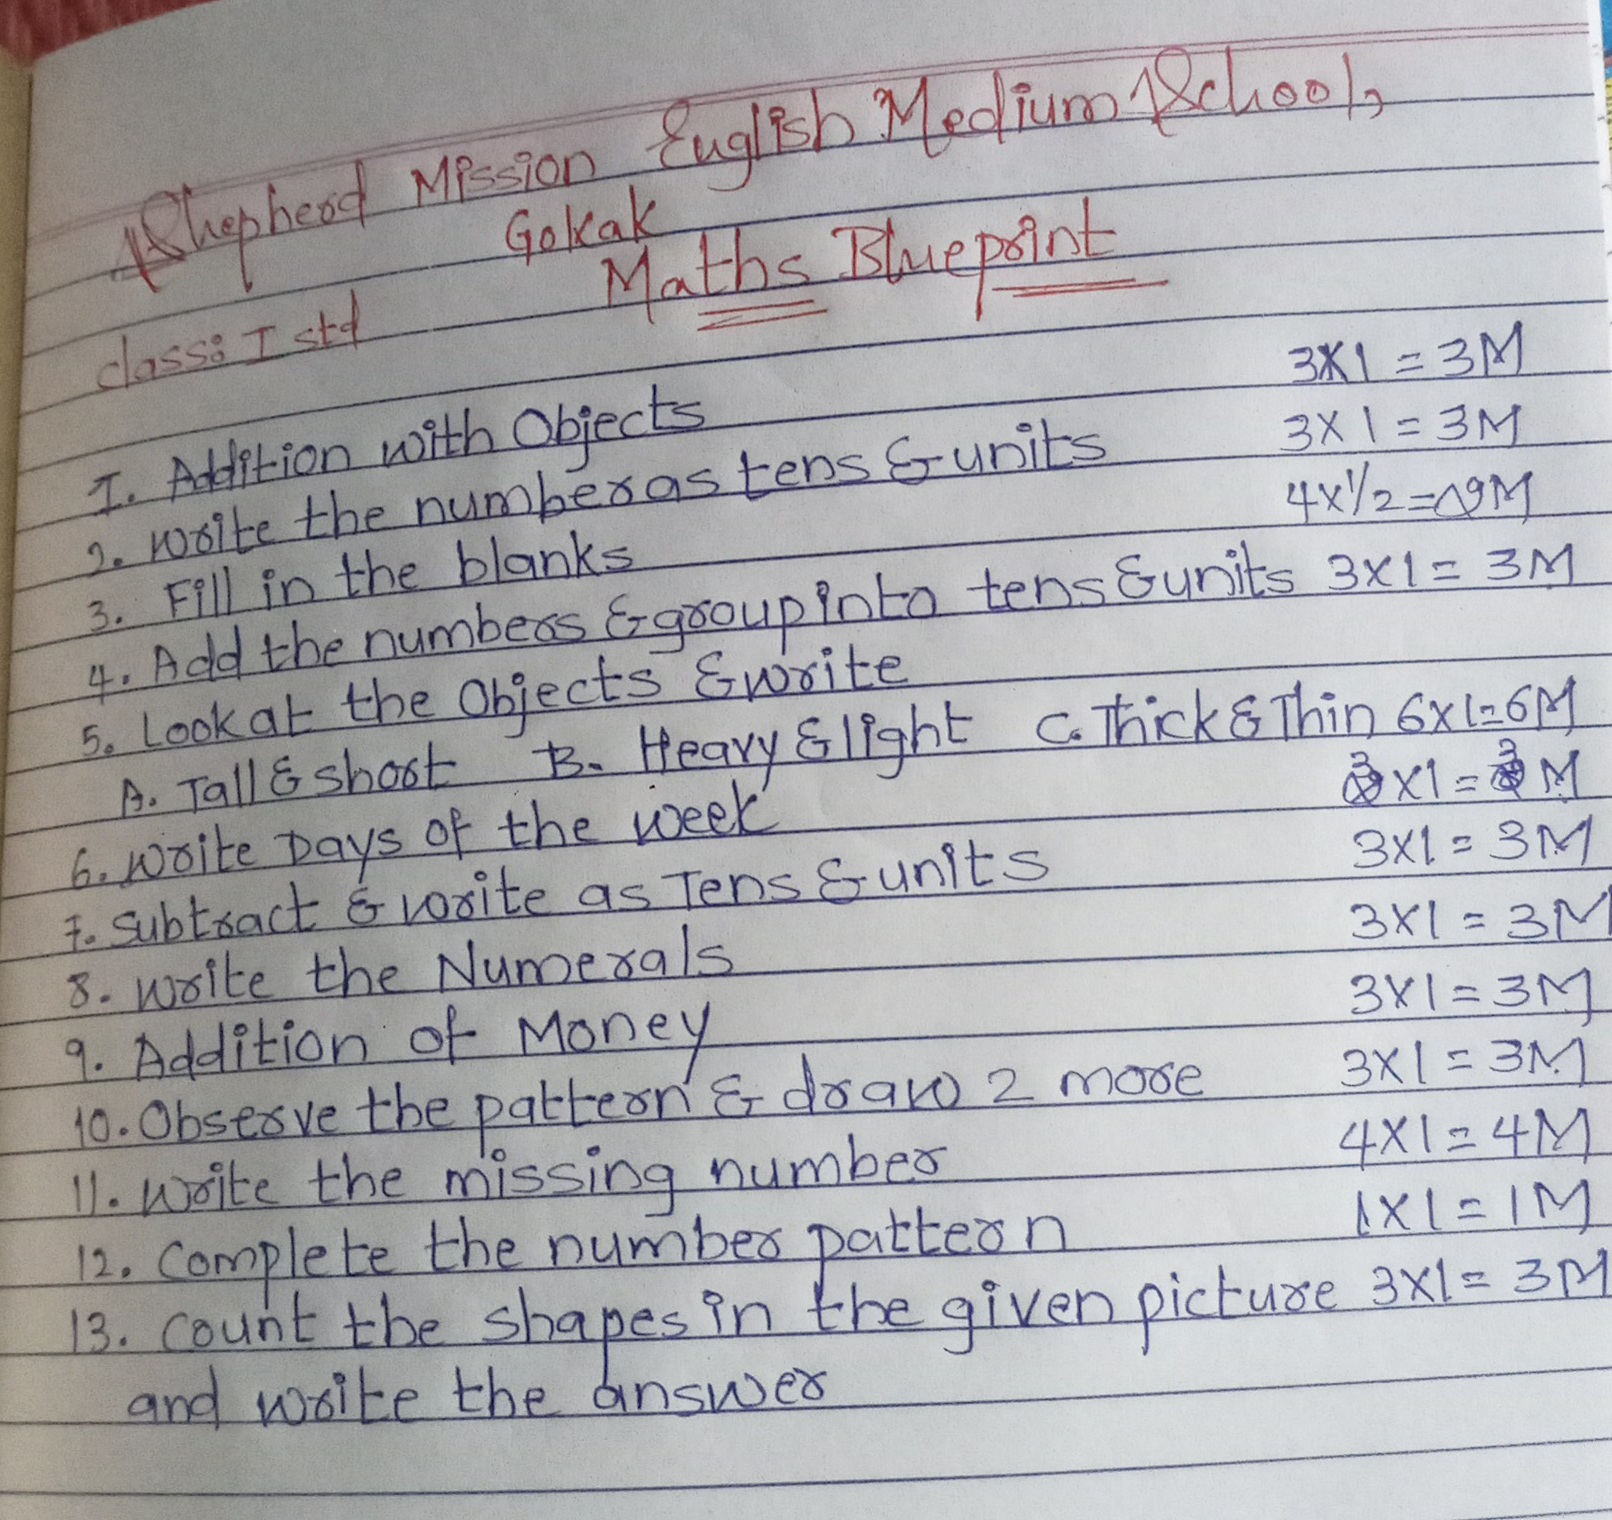 Shepherd Mission English Medium School,
Gokak
Maths Blueprint
class: I std
1. Addition with Objects 3X1 = 3M
2. Write the number as tens & units 3X1 = 3M
3. Fill in the blanks 4x1/2 = 2M
4. Add the numbers & group into tens & units 3x1 = 3M
5. Look at the Objects & write
A. Tall & short B. Heavy & light C. Thick & Thin 6x1=6M
6. Write Days of the week 3x1 = 3M
7. Subtract & write as Tens & units 3x1 = 3M
8. Write the Numerals 3X1 = 3M
9. Addition of Money 3X1 = 3M
10. Observe the pattern & draw 2 more 3X1 = 3M
11. Write the missing number 4X1 = 4M
12. Complete the number pattern 1X1 = 1M
13. Count the shapes in the given picture 3x1 = 3M
and write the answer